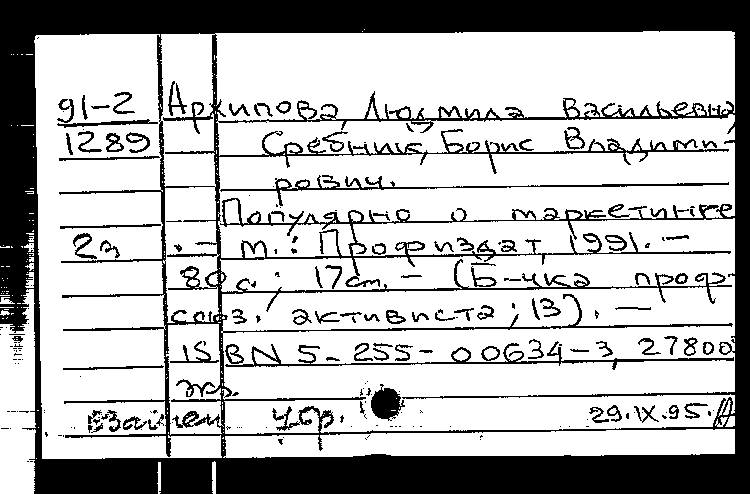 91-2 Архипова, Людмила Васильевна,
1289 Сребник, Борис Владими-
рович.
Популярно о маркетинге
2э .— М.: Профиздат, 1991. —
80 с.; 17 см. — (Б-чка проф-
союз. активиста; 13). —
ISBN 5-255-00634-3, 27800
экз.
взаимен убр. 29.IX.95.